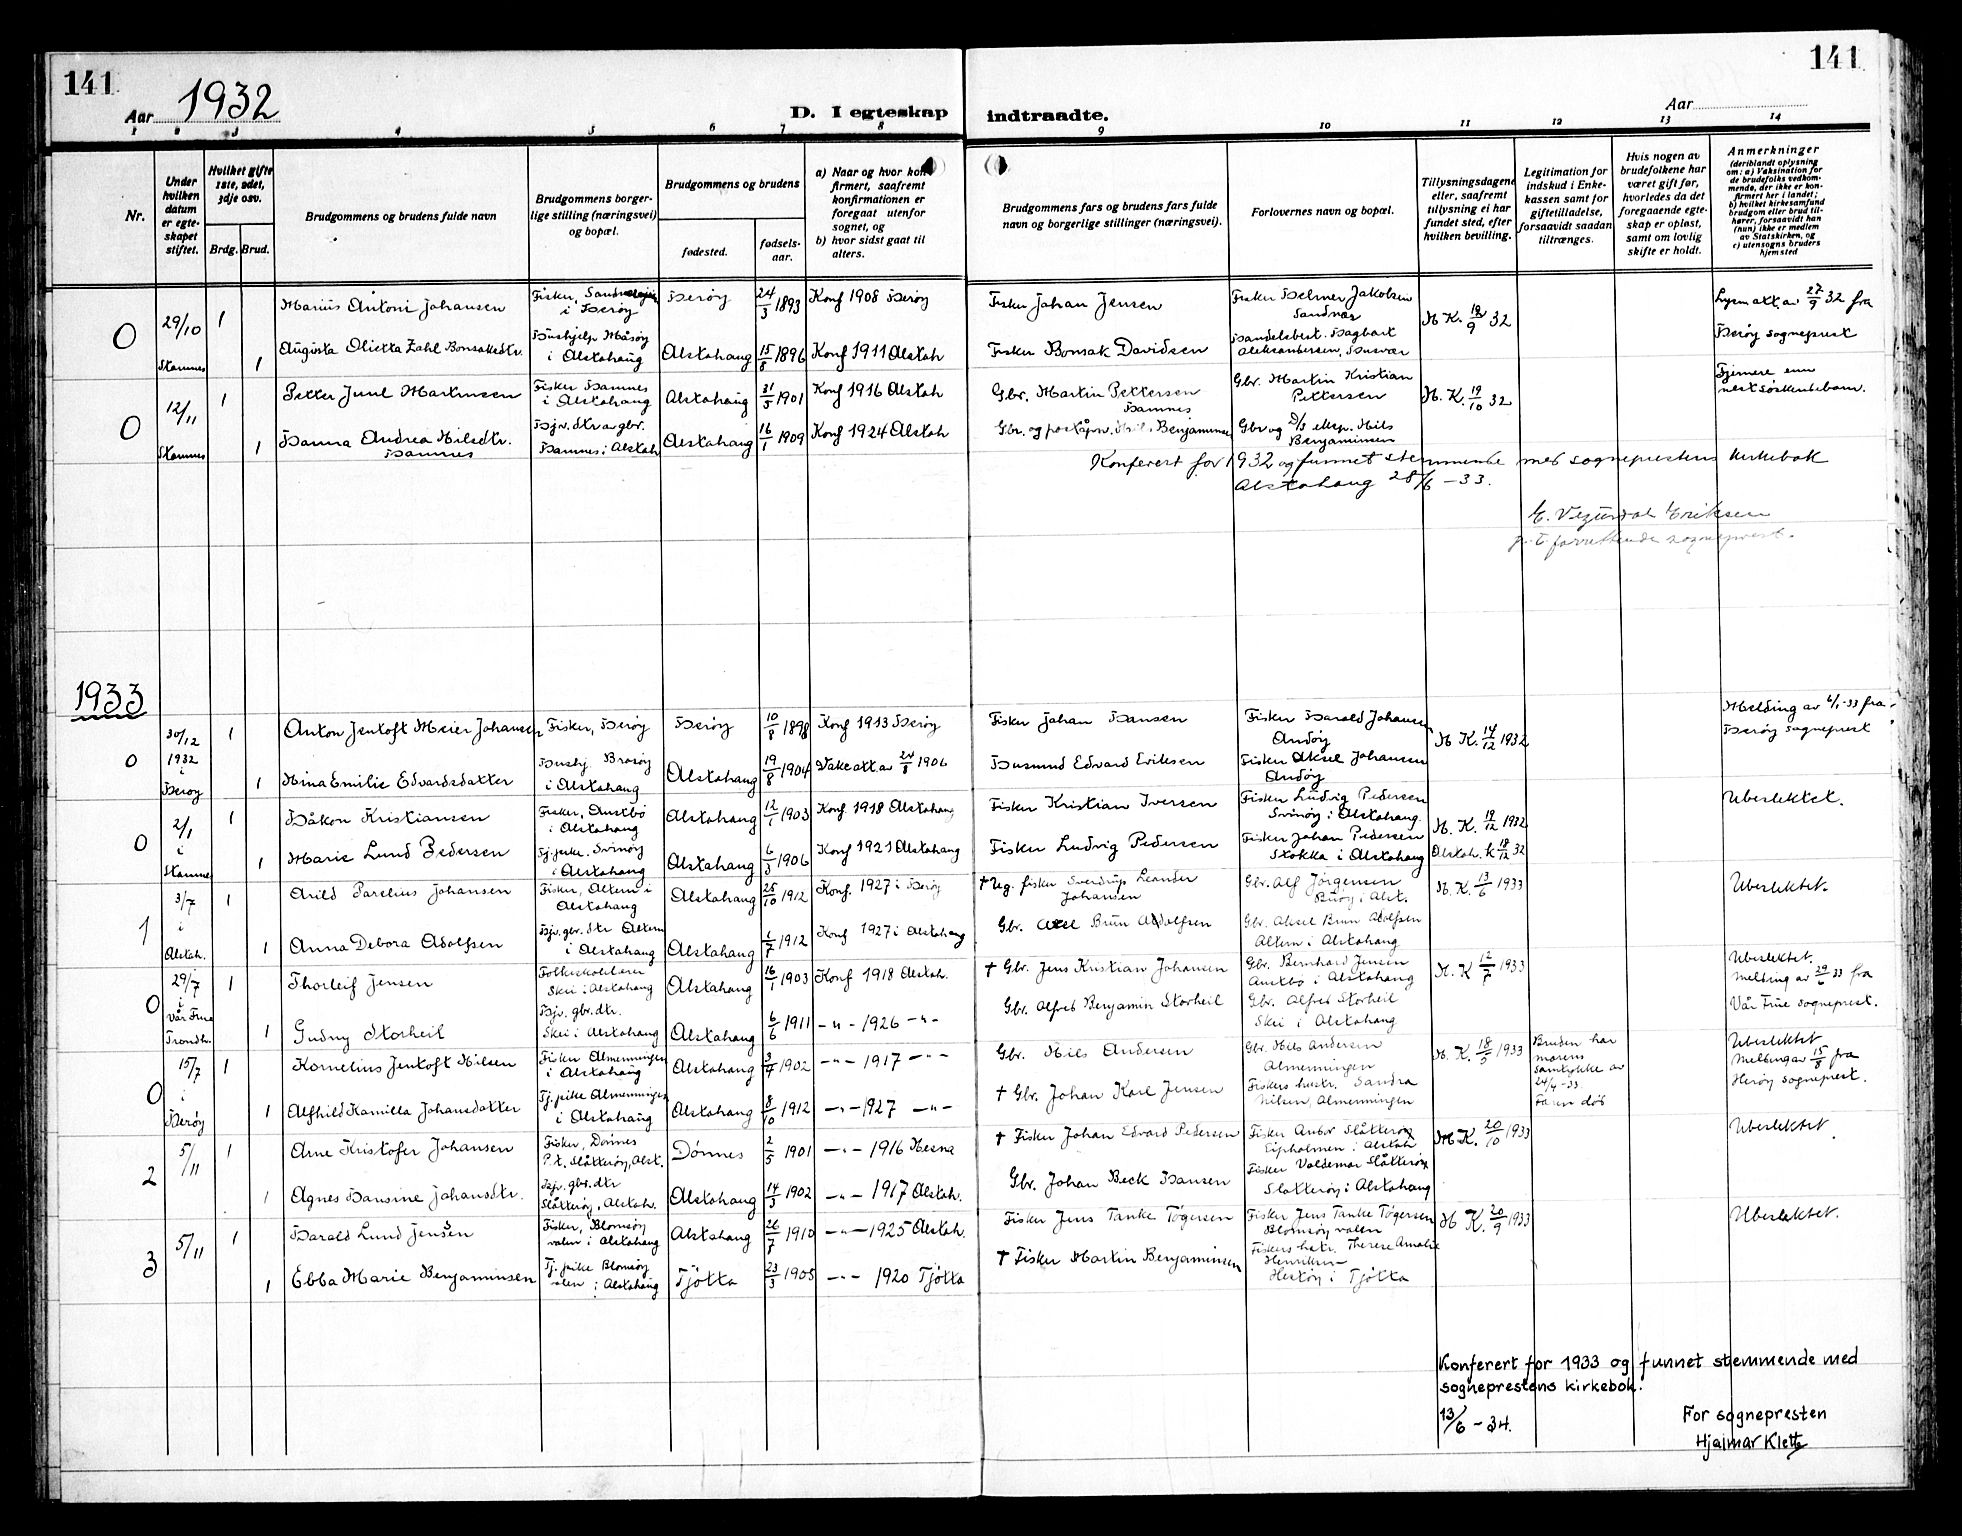 141
141
Aar 1932
D. I egteskap
indtraadte.
Aar
1 2 3 4 5 6 7 8 9 10 11 12 13 14
Nr.
Under hvilken datum er egte-skapet stiftet.
Hvilket gifte 1ste, 2det, 3dje osv.
Brdg. Brud.
Brudgommens og brudens fulde navn
Brudgommens borger-lige stilling (næringsvei) og bopæl.
Brudgommens og brudens
fødested.
fødsels-aar.
a) Naar og hvor kon-firmert, saafremt konfirmationen er foregaat utenfor sognet, og
b) hvor sidst gaat til alters.
Brudgommens fars og brudens fars fulde navn og borgerlige stillinger (næringsvei).
Forlovernes navn og bopæl.
Tillysningsdagene eller, saafremt tillysning ei har fundet sted, efter hvilken bevilling.
Legitimation for indskud i Enke-kassen samt for giftetilladelse, forsaavidt saadan tiltrænges.
Hvis nogen av brudefolkene har været gift før, hvorledes da det foregaaende egte-skap er opløst, samt om lovlig skifte er holdt.
Anmerkninger
(deriblandt oplysning om: a) Vaksination for de brudefolks vedkom-mende, der ikke er kon-firmert her i landet; b) hvilket kirkesamfund brudgom eller brud til-hører, forsaavidt han (hun) ikke er medlem av Statskirken, og c) utensogns bruders hjemsted
0 29/10 Stamnes 1 Marius Antoni Johansen Fisker, i Herøy Herøy 24/3 1893 Konf 1908 Herøy Fisker Johan Jensen Fisker Helmer Jakobsen Sandnes N. K. 19/9 32 Lysn att av 27/9 32 fra Herøy sogneprest
1 Augusta Olietta Zahl Bonsaksdtr. Hushjelp Måsøy i Alstahaug Alstahaug 15/8 1896 Konf 1911 Alstah Fisker Bonsak Davidsen Handelsbest. Dagbart Aleksandersen, Husvær
0 12/11 Stamnes 1 Petter Juul Martinsen Fisker Hamnes i Alstahaug Alstahaug 31/5 1901 Konf 1916 Alstah Gbr. Martin Pettersen Hamnes Gbr. Martin Kristian Pettersen N. K. 19/10 32 Fjernere enn nest søskendebarn.
1 Hanna Andrea Nilsdtr. Hamnes Hjv. dtr av gbr. Hamnes i Alstah Alstahaug 16/1 1909 Konf 1924 Alstah Gbr. og poståpn. Nils Benjaminsen Gbr og D/s eksp. Nils Benjaminsen
Konferert for 1932 og funnet stemmende med sogneprestens kirkebok
Alstahaug 28/6 - 33.
E. Eriksen
p. t. forrettende sogneprest.
1933
0 30/12 1932 i Herøy 1 Anton Jentoft Meier Johansen Fisker, Herøy Herøy 10/8 1898 Konf 1913 Herøy Fisker Johan Hansen Fisker Harald Johansen Andøy N. K. 14/12 1932 Melding av 6/1-33 fra Herøy sogneprest
1 Nina Emilie Edvardsdatter Hushj Brasøy i Alstahaug Alstahaug 19/8 1904 Vakc att av 24/8 1906 Husmand Edvard Eriksen Fisker Aksel Johansen Andøy
0 2/1 i Stamnes 1 Håkon Kristiansen Fisker, Austbø i Alstahaug Alstahaug 12/1 1903 Konf 1918 Alstahaug Fisker Kristian Iversen Fisker Ludvig Pedersen Svinøy i Alstahaug N. K. 19/12 1932 Ubeslektet.
1 Marie Lund Pedersen Tj.pike. Svinøy i Alstahaug Alstahaug 6/3 1906 Konf 1921 Alstahaug Fisker Ludvig Pedersen Fisker Johan Pedersen Stokka i Alstahaug Alstah. k 18/12 32
1 3/7 i Alstah. 1 Arild Parelius Johansen Fisker, Altern i Alstahaug Alstahaug 25/10 1912 Konf. 1927 i Herøy † Ug. fisker Sverdrup Leander Johansen Gbr. Alf Jørgensen Buøy i Alst. N. K. 13/6 1933 Ubeslektet.
1 Anna Debora Adolfsen Hjv. gbr. dtr Altern i Alstahaug Alstahaug 1/7 1912 Konf 1927 i Alstahaug Gbr. Axel Brun Adolfsen Gbr. Aksel Brun Adolfsen Altern i Alstahaug
0 29/7 i Vår Frue Trondh. 1 Thorleif Jensen Folkeskolelærer Skei i Alstahaug Alstahaug 16/1 1903 Konf 1918 Alstah. † Gbr. Jens Kristian Johansen Gbr. Bernhard Jensen Austbø i Alstahaug N. K 12/7 1933 Ubeslektet. Melding av 29/6 33 fra Vår Frue sogneprest.
1 Gudny Storheil Hjv. gbr. dtr. Skei i Alstahaug Alstahaug 6/6 1911 -"- 1926 -"- Gbr. Alfred Benjamin Storheil Gbr. Alfred Storheil Skei i Alstahaug
0 15/7 i Herøy 1 Kornelius Jentoft Nilsen Fisker Almenningen i Alstahaug Alstahaug 3/7 1902 -"- 1917 -"- Gbr. Nils Andersen Gbr. Nils Andersen Almenningen N. K. 18/5 1933 Bruden har morens samtykke av 24/4-33 Faren død Ubeslektet Melding av 15/8 fra Herøy sogneprest.
1 Alfhild Kamilla Johansdatter Tj. pike Almenningen i Alstahaug Alstahaug 8/10 1912 -"- 1927 -"- † Gbr. Johan Karl Jensen Fiskers hustr. Sandra Nilsen, Almenningen
2 5/11 1 Arne Kristofer Johansen Fisker, Dønnes P.t. Slåtterøy, Alst. Dønnes 2/5 1901 -"- 1916 Nesna † Fisker Johan Edvard Pedersen Fisker Slåtterøy Eipholmen. Alstah N. K. 20/10 1933 Ubeslektet
1 Agnes Hansine Johansdtr. Hjv. gbr. dtr Slåtterøy, Alstah. Alstahaug 14/3 1902 -"- 1917 Alstah. Gbr. Johan Beck Hansen Fisker Valdemar Slåtterøy Slåtterøy i Alstahaug
3 5/11 1 Harald Lund Jensen Fisker, Blomsøy valen i Alstahaug Alstahaug 26/7 1910 -"- 1925 Alstah. Fisker Jens Tanke Tøgersen Fisker Jens Tanke Tøgersen Blomsøy valen N. K. 20/9 1933 Ubeslektet.
1 Ebba Marie Benjaminsen Tj. pike Blomsøy valen i Alstahaug Tjøtta 23/3 1905 -"- 1920 Tjøtta † Fisker Martin Benjaminsen Fiskers hstr. Therese Amalie Henriksen Hestøy i Tjøtta
Konferert for 1933 og funnet stemmende med
sogneprestens kirkebok.
13/6 - 34.
For sognepresten
Hjalmar Klette